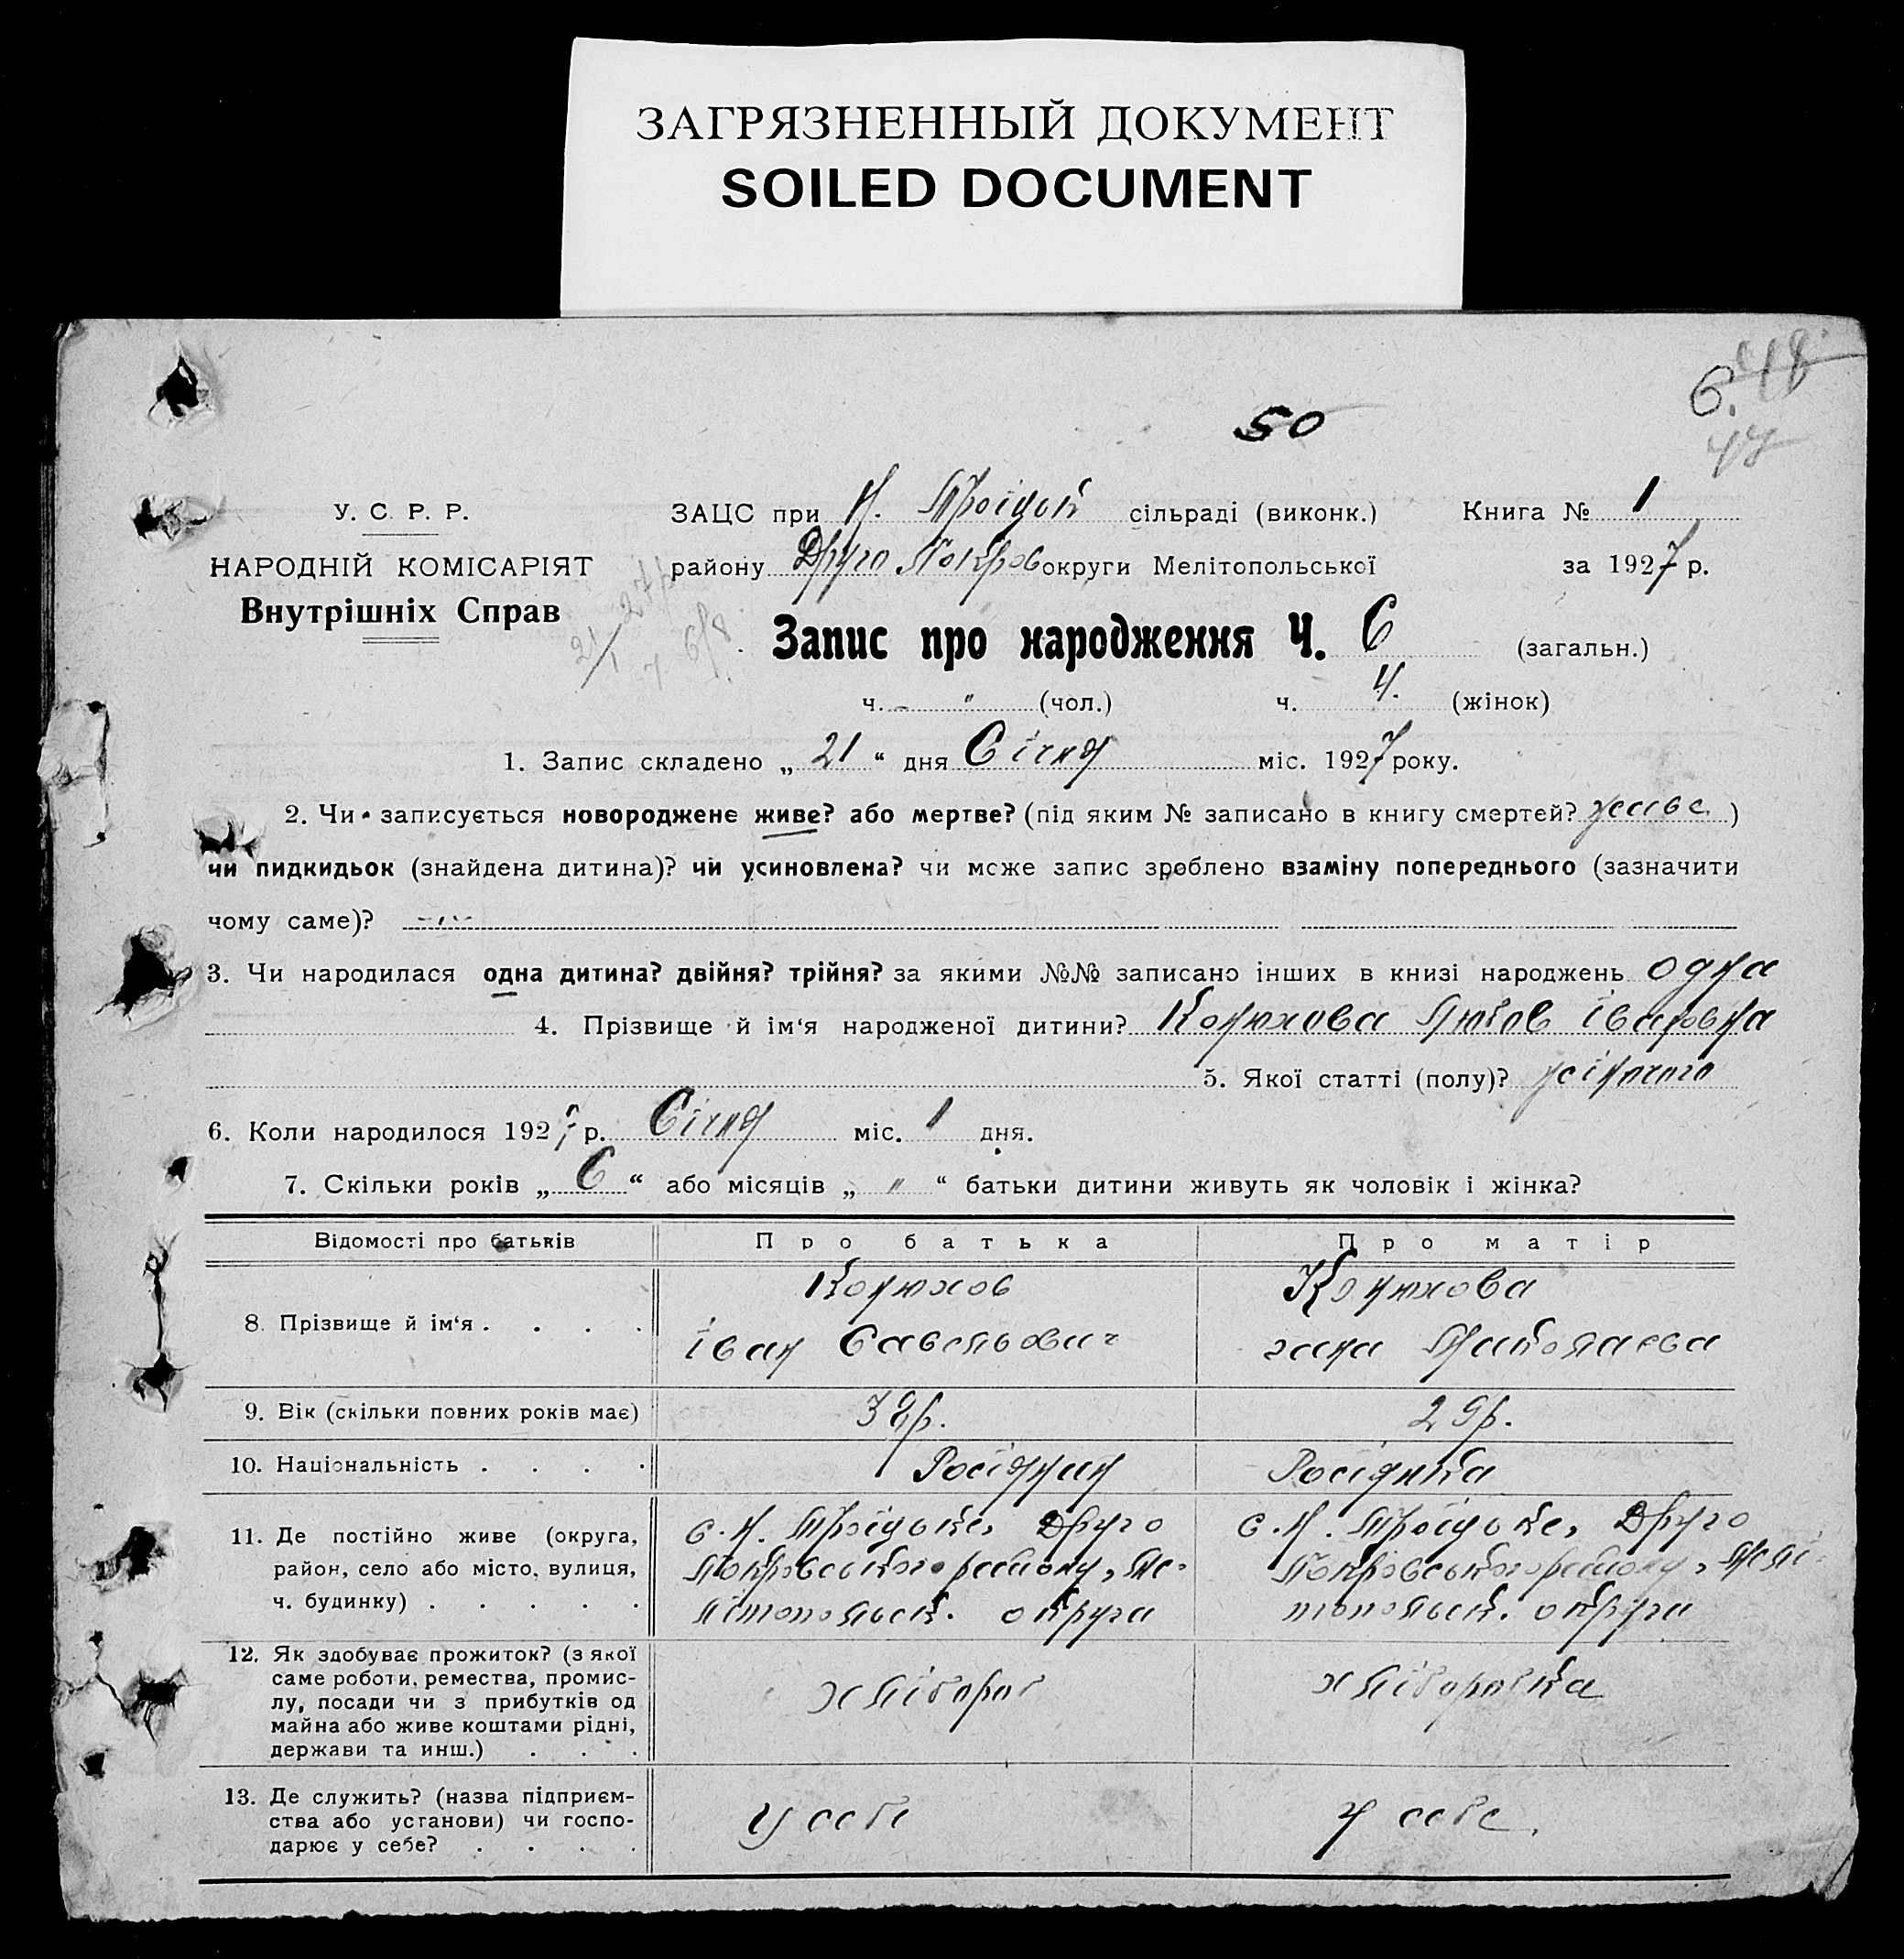 ЗАГРЯЗНЕННЫЙ ДОКУМЕНТ
SOILED DOCUMENT
6. 48
47
50
У. С. Р. Р.
НАРОДНІЙ КОМІСАРІЯТ
Внутрішніх Справ
ЗАЦС при Н. Троіцкій сільраді (виконк.) Книга № 1
району Друго Покров округи Мелітопольської за 1927 р.
Запис про народження Ч. 6 (загальн.)
ч. " (чол.) ч. 4. (жінок)
1. Запис складено „ 21 “ дня Січня міс. 1927 року.
2. Чи записується новороджене живе? або мертве? (під яким № записано в книгу смертей? живе )
чи пидкидьок (знайдена дитина)? чи усиновлена? чи може запис зроблено взаміну попереднього (зазначити
чому саме)?
3. Чи народилася одна дитина? двійня? трійня? за якими №№ записано інших в книзі народжень одна
4. Прізвище й ім‘я народженої дитини? Конюхова Любов Івановна
5. Якої статті (полу)? жіночого
6. Коли народилося 1927 р. Січня міс. 1 дня.
7. Скільки років „ 6 “ або місяців „ " “ батьки дитини живуть як чоловік і жінка?
Відомості про батьків Про батька Про матір
8. Прізвище й ім‘я . . . . . Конюхов Конюхова
Іван Савельович Миколаєва
9. Вік (скільки повних років має) 38р. 29р.
10. Національність . . . . Росіянин Росіянка
11. Де постійно живе (округа, с. Н. Троіцьке, Друго с. Н. Троіцьке, Друго
район, село або місто, вулиця, Покровського району, Ме- Покровського району, Мелі-
ч. будинку) . . . . . літопольск. округи топольск. округи
12. Як здобуває прожиток? (з якої
саме роботи, ремества, промис-
лу, посади чи з прибутків од хлібороб хліборобка
майна або живе коштами рідні,
держави та инш.) . . .
13. Де служить? (назва підприєм-
ства або установи) чи госпо- у себе у себе.
дарює у себе? . . . .